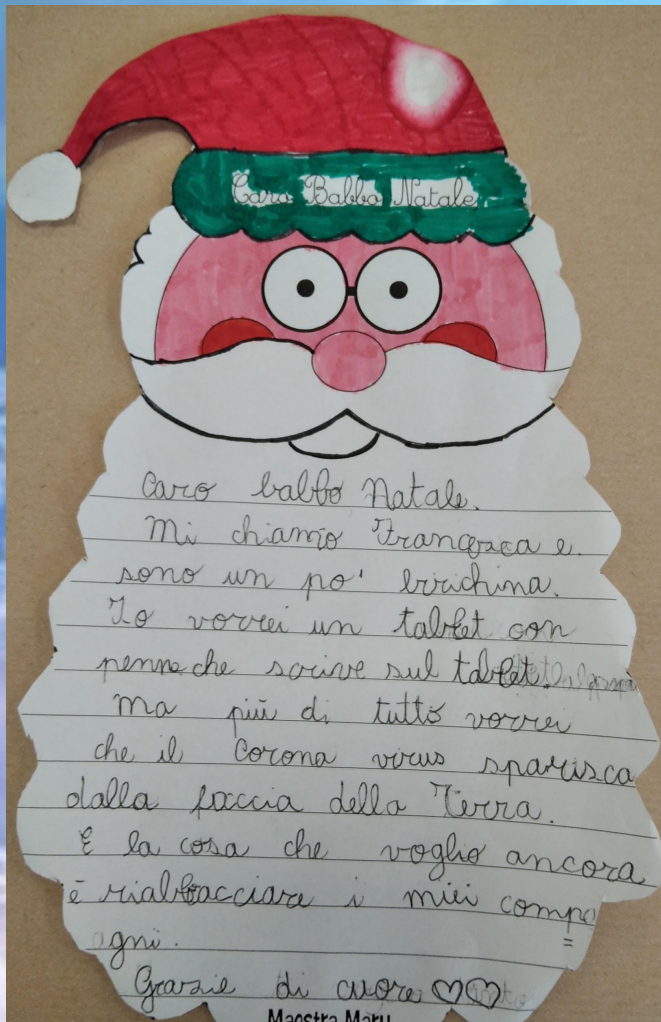 Caro Babbo Natale
Caro babbo Natale.
Mi chiamo Francesca e
sono un po' birichina.
Io vorrei un tablet con
penna che scrive sul tablet.
Ma più di tutto vorrei
che il Corona virus sparisca
dalla faccia della Terra.
E la cosa che voglio ancora
è riabbracciare i miei comp
agni. =
Grazie di cuore ♡♡
Maestra Mary